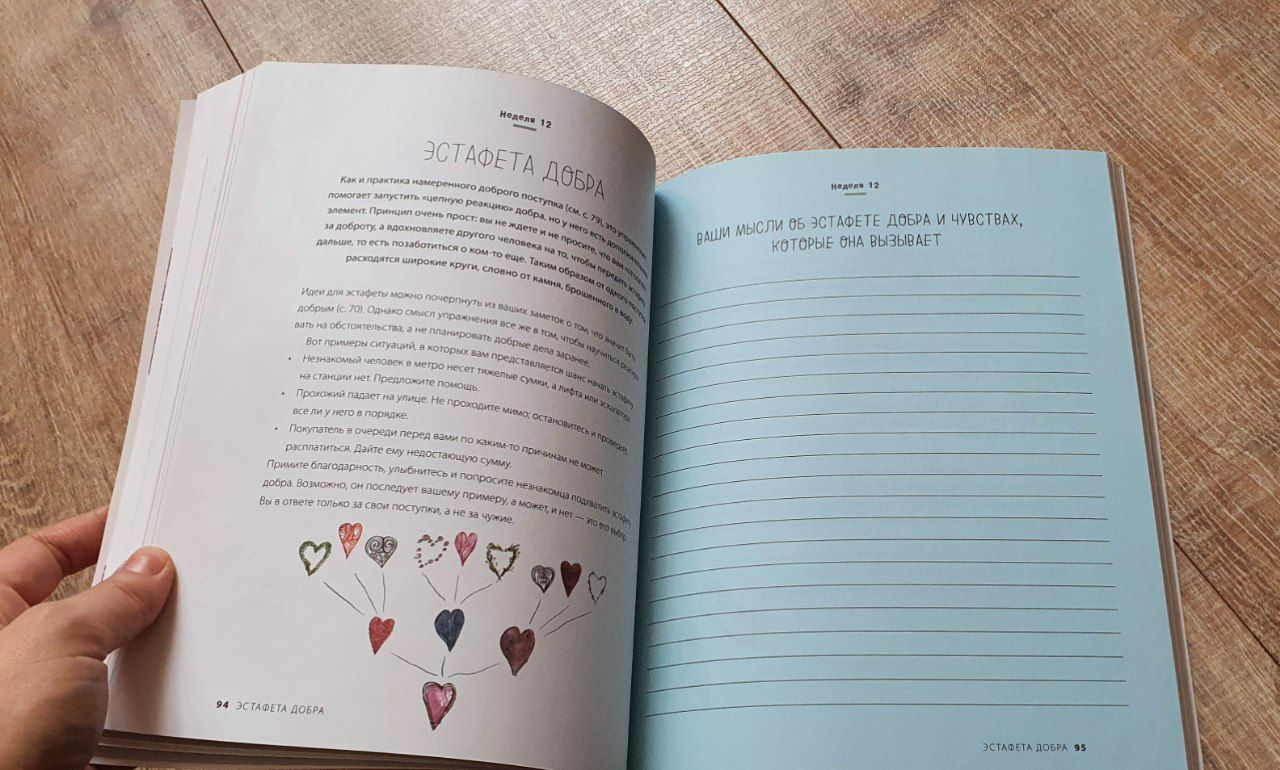 Неделя 12
ЭСТАФЕТА ДОБРА
Как и практика намеренного доброго поступка (см. с. 79), это упражнение
помогает запустить «цепную реакцию» добра, но у него есть дополнительный
элемент. Принцип очень прост: вы не ждете и не просите, что вам
за доброту, а вдохновляете другого человека на то, чтобы передать эстафету
дальше, то есть позаботиться о ком-то еще. Таким образом от одного поступка
расходятся широкие круги, словно от камня, брошенного в воду.
Идеи для эстафеты можно почерпнуть из ваших заметок о том, что значит быть
добрым (с. 70). Однако смысл упражнения все же в том, чтобы научиться реагиро-
вать на обстоятельства, а не планировать добрые дела заранее.
Вот примеры ситуаций, в которых вам представляется шанс начать эстафету
• Незнакомый человек в метро несет тяжелые сумки, а лифта или эскалатора
на станции нет. Предложите помощь.
• Прохожий падает на улице. Не проходите мимо; остановитесь и проверьте,
все ли у него в порядке.
• Покупатель в очереди перед вами по каким-то причинам не может
расплатиться. Дайте ему недостающую сумму.
Примите благодарность, улыбнитесь и попросите незнакомца подхватить эстафету
добра. Возможно, он последует вашему примеру, а может, и нет — это его выбор.
Вы в ответе только за свои поступки, а не за чужие.
94 ЭСТАФЕТА ДОБРА
Неделя 12
ВАШИ МЫСЛИ ОБ ЭСТАФЕТЕ ДОБРА И ЧУВСТВАХ,
КОТОРЫЕ ОНА ВЫЗЫВАЕТ
ЭСТАФЕТА ДОБРА 95